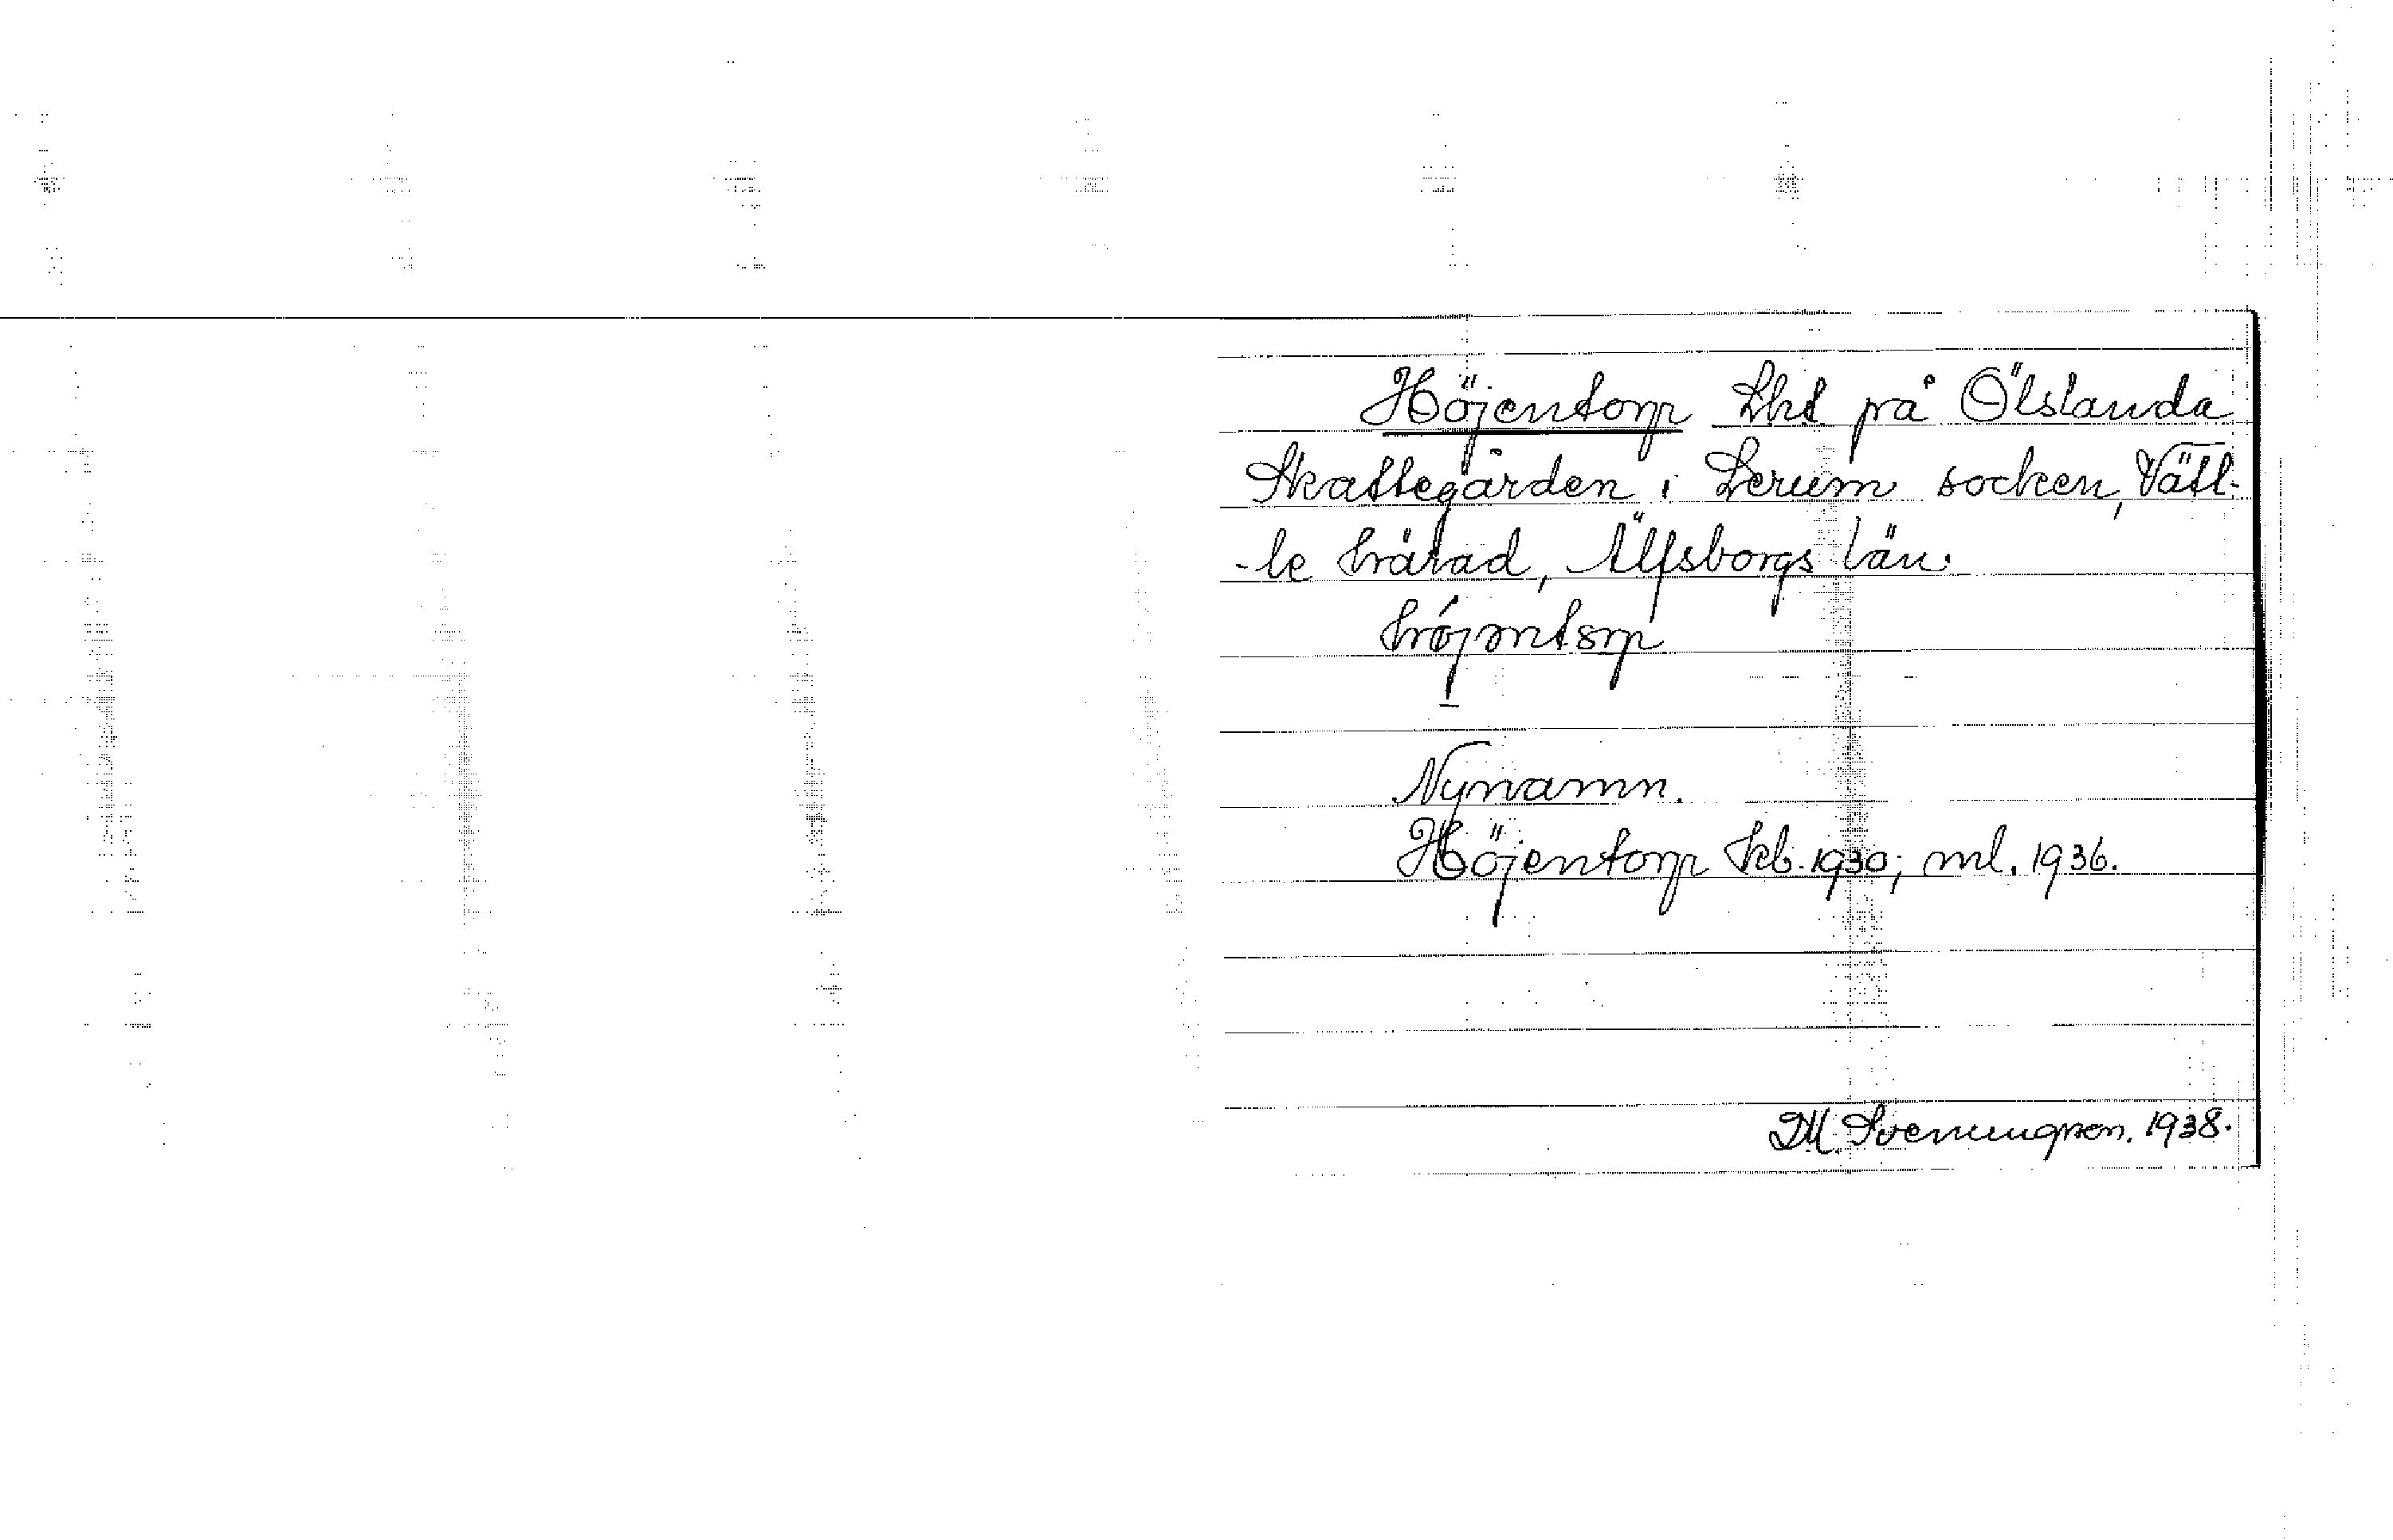 Höjentorp Lht på Ölslanda
Skattegården i Lerum socken, Vätt-
-le härad, Älfsborgs län.
höjəntorp
Nynamn.
Höjentorp kb. 1930; ml. 1936.
D.M. Svenungson. 1938.